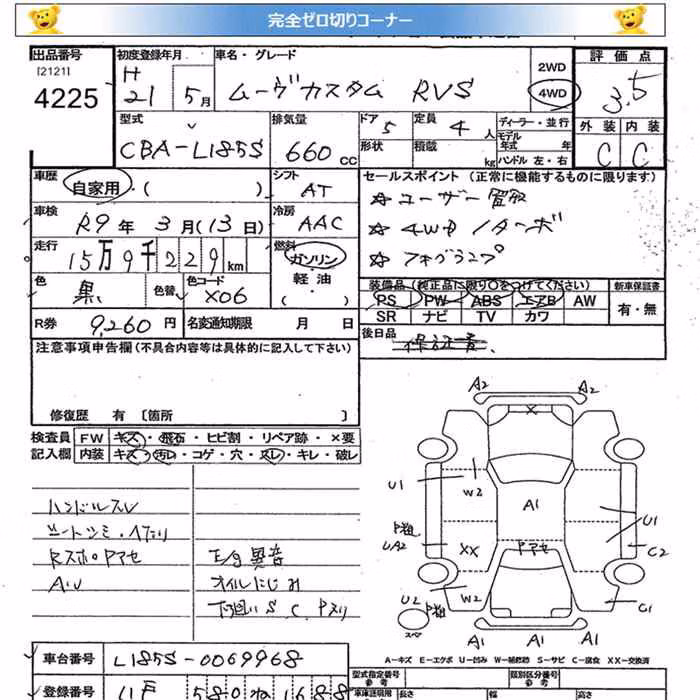 完全ゼロ切りコーナー
出品番号
[2121]
4225
初度登録年月
H
21 5月
車名・グレード
ムーヴカスタム RVS
2WD
4WD
評価点
3.5
外装 内装
C C
型式
CBA-L185S
排気量
660 cc
ドア 5
形状
定員 4人
積載 kg
ディーラー・並行
モデル年式 年
ハンドル 左・右
車歴
自家用・( )
シフト
AT
セールスポイント (正常に機能するものに限ります)
☆ユーザー買取
☆4WD ターボ
☆フォグランプ
車検
R9年3月(13日)
冷房
AAC
走行
15万9千229km
燃料
ガソリン
軽油
( )
色
黒
色替
色コード
X06
装備品 (純正品に限り○をつけてください)
新車保証書
PS PW ABS エアB AW
SR ナビ TV カワ
有・無
R券 9,260円
名変通知期限 月 日
後日品
保証書
注意事項申告欄(不具合内容等は具体的に記入して下さい)
修復歴 有 〔箇所 〕
検査員
記入欄
FW キズ・飛石・ヒビ割・リペア跡・×要
内装 キズ・汚レ・コゲ・穴・スレ・キレ・破レ
ハンドルスレ
シートシミ・ヘタリ
RスポPアセ
AU
E/g異音
オイルにじみ
下廻りS、C、Pスリ
A2 A2
U1
W2
A1
U1
UA2
XX
Pアセ
C2
U2
W2
C1
スペア
A1 A1
A-キズ E-エクボ U-凹み W-補修跡 S-サビ C-腐食 XX-交換済
車台番号
L185S-0069968
型式指定番号
参考
類別区分番号
参考
登録番号
580 ね 1688
車検証明用
長さ 幅 高さ